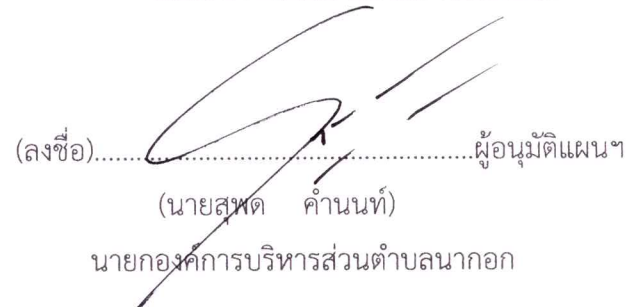 (ลงชื่อ)..............................................................ผู้อนุมัติแผนฯ
(นายสุพด คำนนท์)
นายกองค์การบริหารส่วนตำบลนากอก